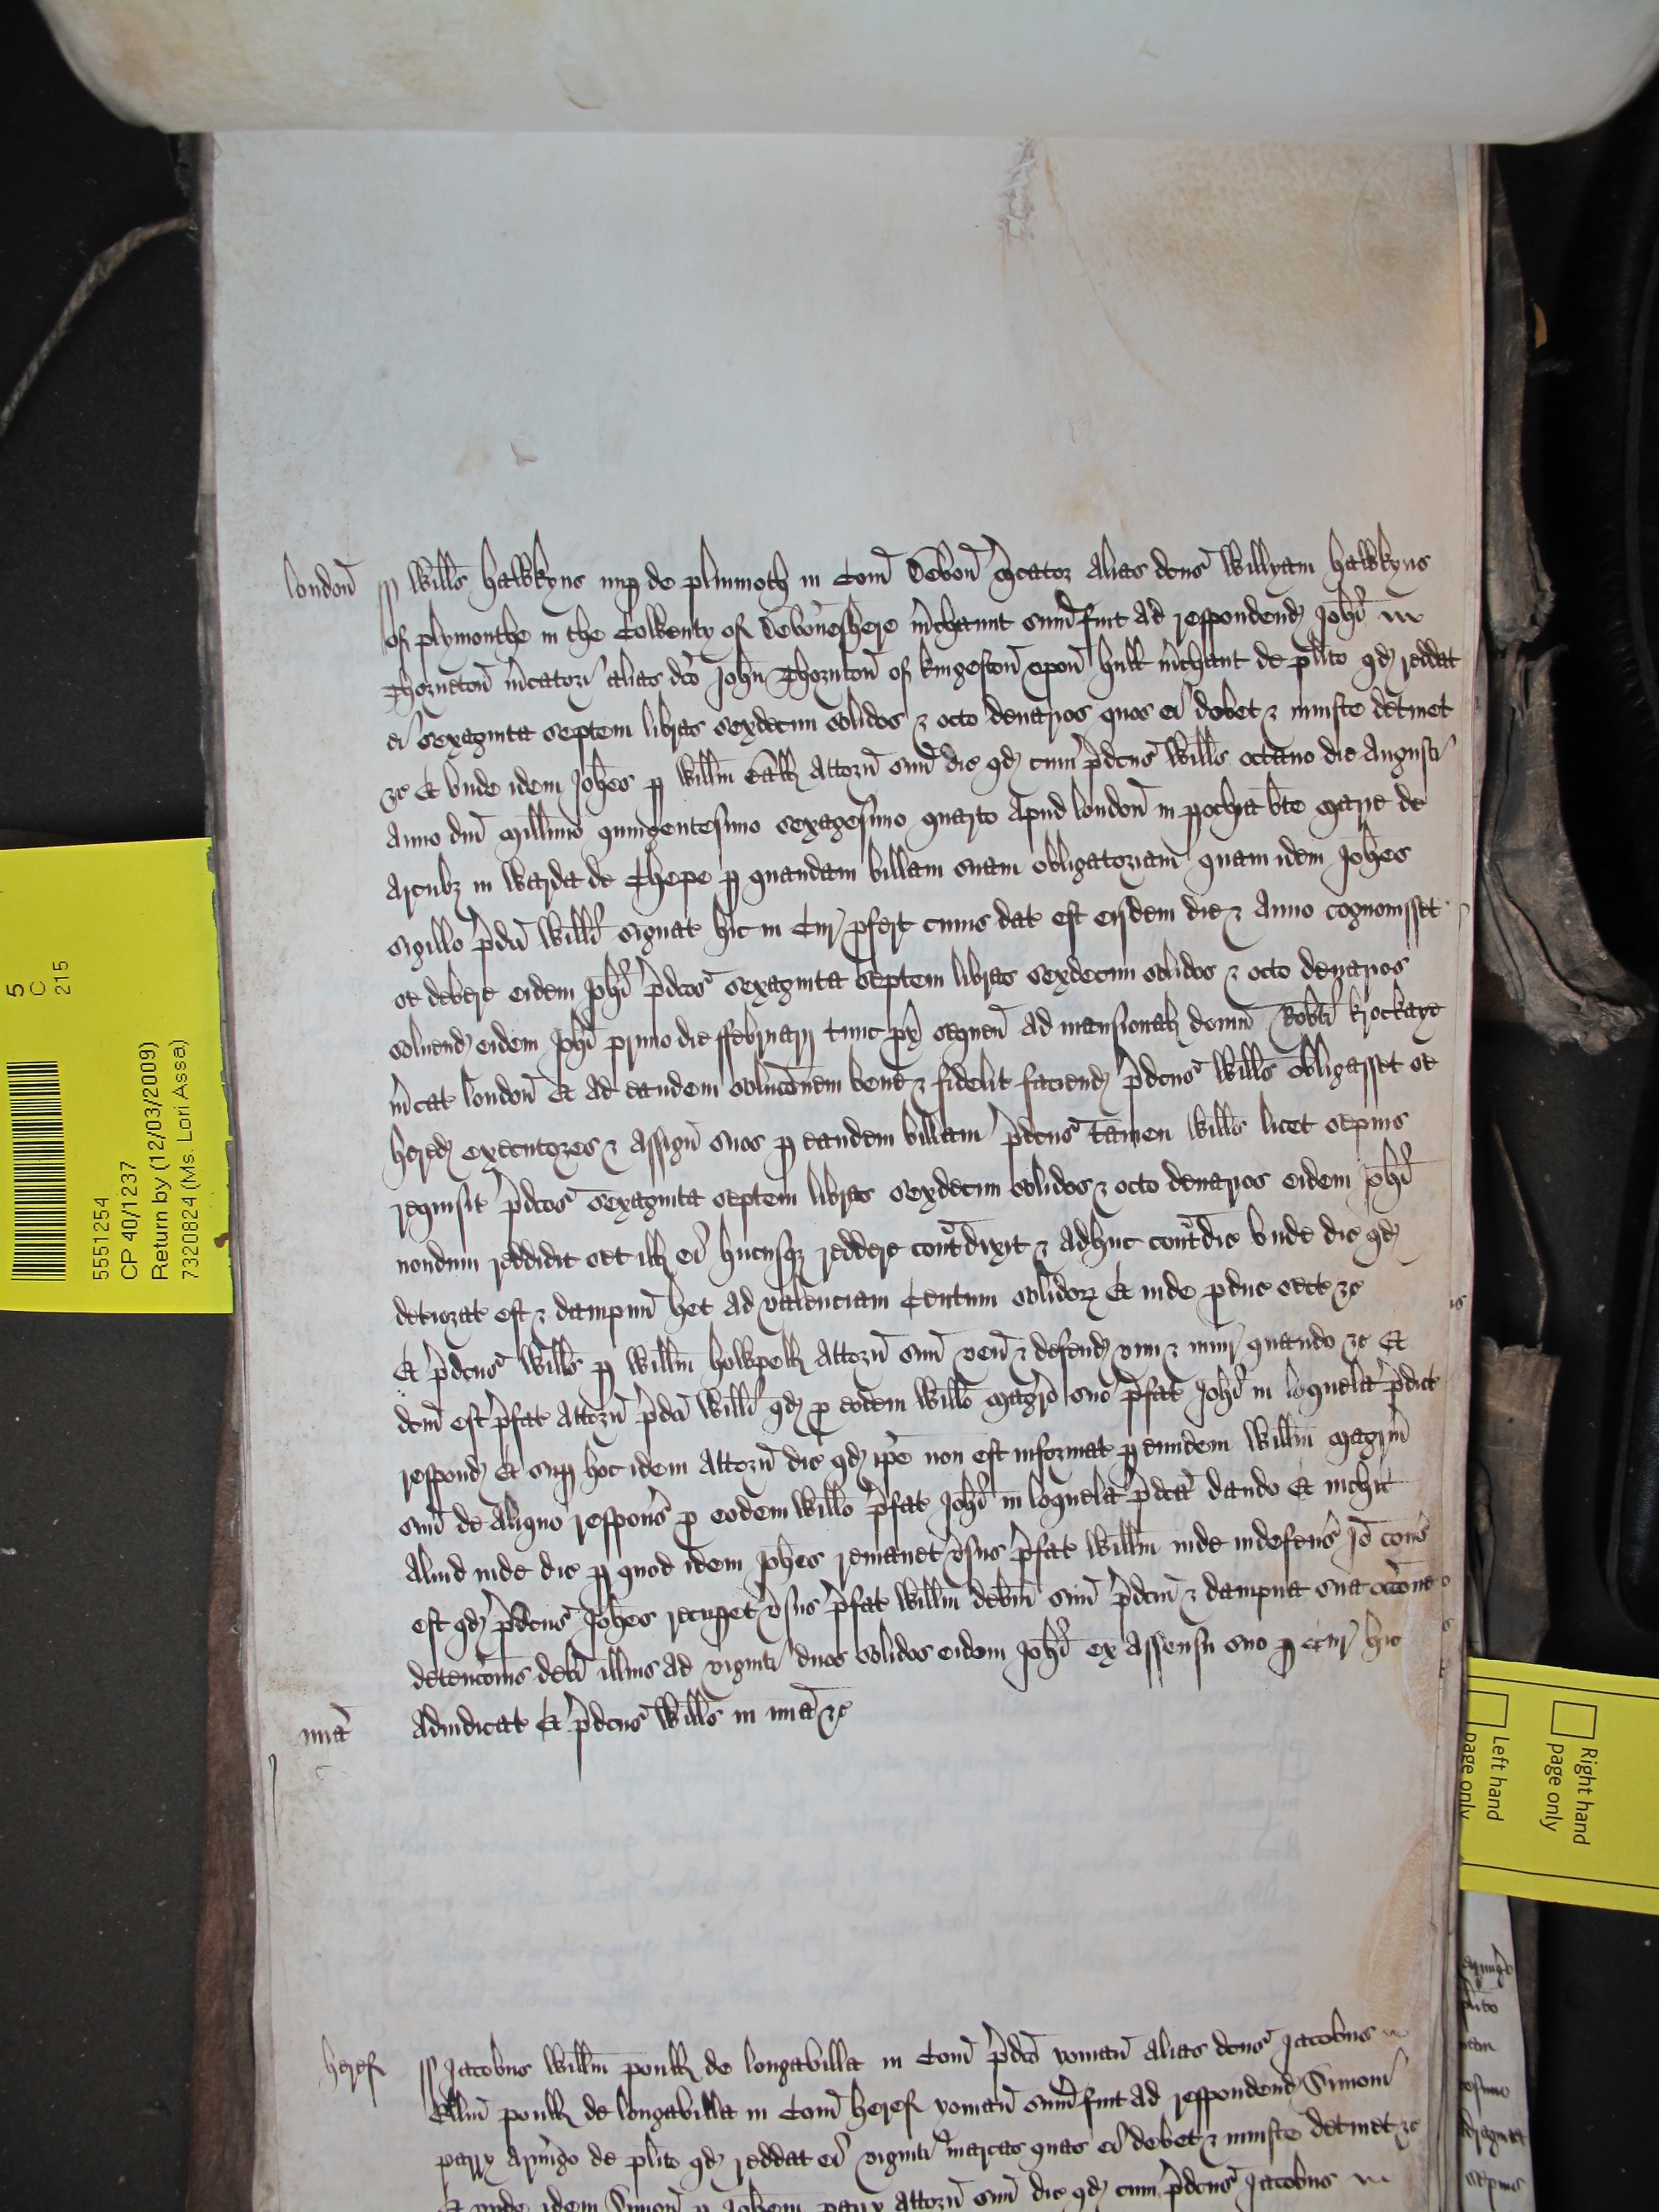 london̄ ss Willm̄s hawkyns nup de plummoth in Com̄ Devon̄ m̄cator Alias dc̄us Willyam hawkyns
of plymouthe in the Cowenty of Devon̄eshere m̄chaunt sum̄ fuit ad respondend Joh̄i
Thorneton̄ m̄catori alias dc̄o John̄ Thornton̄ of kingeston̄ opon̄ hull m̄chant de pl̄ito qd reddat
ei sexaginta septem libras sexdecim solidos & octo denarios quos ei debet & iniuste detinet
&c Et unde idem Joh̄es p Willm̄ Attorn̄ suū dic qd cum p̄dc̄us Willm̄s octavo die Augusti
Anno dnī millimo quingentesimo sexagesimo quarto Apud london̄ in pochia b̄te marie de
Arcubz in Warda de Chepe p quandam billam suam obligatoriam quam idem Joh̄es
sigillo p̄dc̄i Willm̄i signat hic in Cur pfert cuius dat est eisdem die & Anno cognovisset
se debere eidem Joh̄i p̄dc̄os sexaginta septem libras sexdecim solidos & octo denarios
solvend eidem Joh̄i primo die ffebruarii tunc px sequen̄ Ad mansional domū Rob̄ti
m̄cat london̄ Et Ad eandem soluc̄onem bene & fidelit faciend p̄dc̄us Willm̄s obligasset se
hered executores & Assign̄ suos p eandem billam p̄dc̄us tamen Willm̄s licet sepius
requisit p̄dc̄os sexaginta septem libras sexdecim solidos & octo denarios eidem Joh̄i
nondum reddidit set ill ei hucusqz reddere cont̄dixit & Adhuc cont̄dic Unde dic qd
deteriorat est & dampnū het Ad valenciam Centum solidorz Et inde pduc sect &c
Et p̄dc̄us Willm̄s p Willm̄ Attorn̄ suū ven̄ & defend vim & iniur quando &c Et
dcm̄ est p̄fat Attorn̄ p̄dc̄i Willm̄i qd p eodem Willm̄o magr̄o suo p̄fat Joh̄i in loquela p̄dict
respond Et sup hoc idem Attorn̄ dic qd ip̄e non est informat p eundem Willm̄ magrm̄
suū de Aliquo respons p eodem Willm̄o p̄fat Joh̄i in loquela p̄dc̄a dando Et nichil
Aliud inde dic p quod idem Joh̄es remanet v̄sus p̄fat Willm̄ inde indefens Jō cons
est qd p̄dc̄us Joh̄es recupet v̄sus p̄fat Willm̄ debm̄ suū p̄dcm̄ & dampna sua occ̄one
detenc̄onis debi illius ad viginti duos solidos eidem Joh̄i ex Assensu suo p Cur hic
mīa Adiudicat Et p̄dc̄us Willm̄s in mīa &c
heref ss Jacobus Willm̄ de longavilla in Com̄ p̄dc̄o yoman̄ Alias dc̄us Jacobus
Willm̄ de longavilla in Com̄ heref yoman̄ sum̄ fuit Ad respondend Simoni
parry Armigo de pl̄ito qd reddat ei viginti marcas quas ei debet & iniuste detinet &c
Et unde idem Simon̄ p Joh̄em parry Attorn̄ suū dic qd cum p̄dc̄us Jacobus
5
C
215
5551254
CP 40/1237
Return by (12/03/2009)
7320824 (Ms. Lori Assa)
Right hand
page only
Left hand
page only